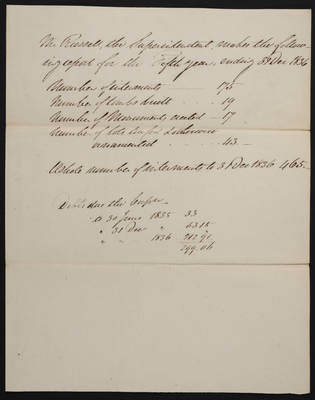 Mr Russell, the Superintendent, makes the follow-
ing report for the Fifth year, ending 31 Dec 1836
Number of interments 175
Number of tombs built 19
Number of Monuments erected 17
Number of lots &
ornamented 43
Whole number of interments to 31 Dec 1836 465
Debts due the
to 30 June 1835 33
" 31 Dec " 53.15
" " 1836 212.91
299.06